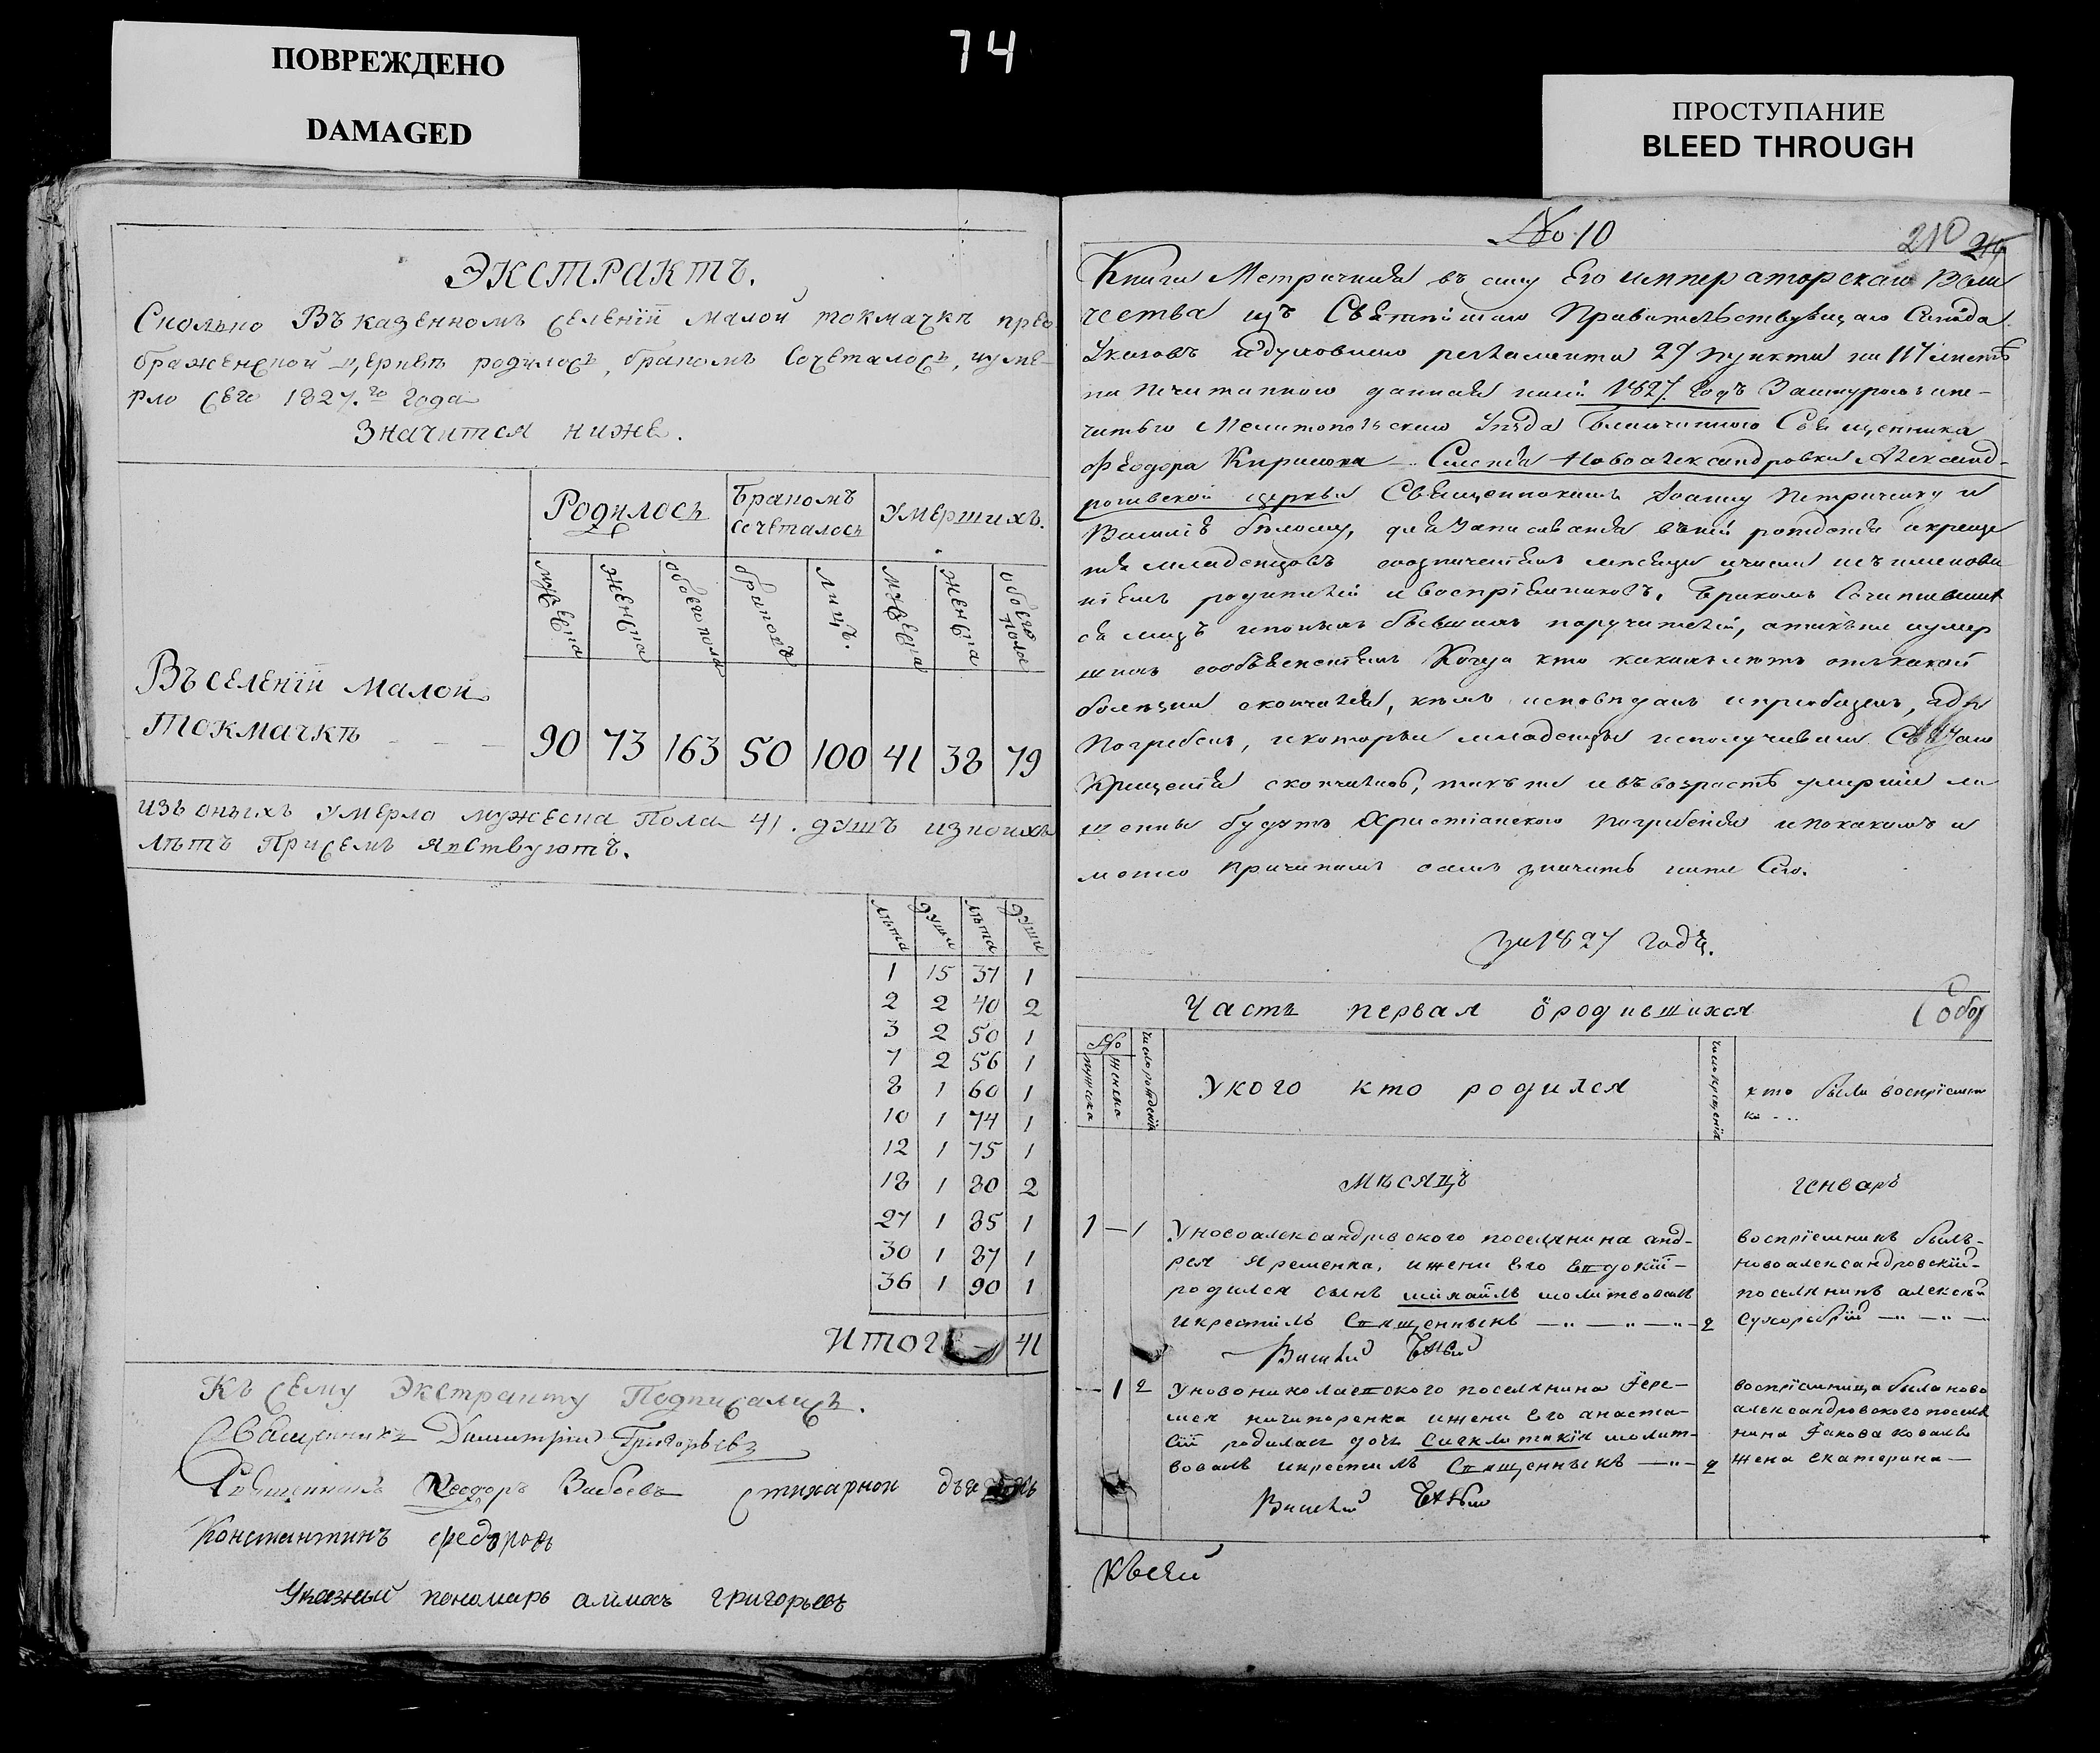 ПОВРЕЖДЕНО
DAMAGED
74
ПРОСТУПАНИЕ
BLEED THROUGH
Экстрактъ.
Сколько Въ казенномъ селенїи малой токмачкѣ прео
браженской церквѣ родилось, бракомъ Сочеталось, иуме-
рло сего 1827.го Года
Значится ниже.
Родилось
Бракомъ сочеталось
умершихъ.
мужеска
женска
обоего пола
браковъ
лицъ.
мужеска
женска
обоего пола
Въ селенїи малой
токмачкѣ - - -
90 73 163 50 100 41 38 79
изъ оныхъ умерло мужеска Пола 41. душъ изкоихъ
лѣтъ Присемъ явствуютъ.
лѣта души лѣта души
1 15 37 1
2 2 40 2
3 2 50 1
7 2 56 1
8 1 60 1
10 1 74 1
12 1 75 1
18 1 80 2
27 1 85 1
30 1 87 1
36 1 90 1
Итого 41
Къ сему Экстракту Подписались.
Священникъ Димитрїй Григорьевъ
Священникъ Ѳеодоръ стихарной дьячокъ
Константинъ федоровъ
Указный пономарь григорьевъ
No 10
210
Книги Метричния въ силу Его императорскаго Вели
чества изъ Святѣйшаго Правительствующаго Синода
Указовъ идуховнаго регламента 29 пункта на 117 листѣ
на печитанного данная на 1827. Годъ
Мелитопольскаго уѣзда благочинного Священника
Феодора Кирилова Селенїя Новоалександровки Александ-
ровской церкви Священникамъ Іоанну Петриченку и
Василїю бѣлому, для Записованїя въней рожденїя икреще
нїя младенцовъ созначенїемъ мѣсяца ичисла исъ именова
нїемъ родителей ивоспрїемниковъ. Бракомъ Сочитавших
ся лицъ ипокимъ бывшимъ поручителей, атакъже иумер
шихъ собъясненїемъ Когда кто какихълѣтъ отъкакой
болѣзни скончался, кѣмъ исповѣданъ ипрїобщенъ, гдѣ
Погребенъ, икоторые младенцы неполучивши Святаго
Крещенїя скончались, такъже ивъвозрастѣ умершїе ли
шенны будутъ Христїанского погребенїя ипокакимъ и
менно Причинамъ самъ значитъ ниже Сего.
за 1827 годъ.
Часть первая ородившихся
No
мужеска
женска
число рожденїя
Укого кто родился
число крещенїя
кто были воспрїемни
ки - ..
мѣсяцъ
генваръ
1 — 1 Уновоалександровского поселянина анд-
рея яременка, ижени Его Евдокїи-
родился сынъ михаилъ молитвовалъ
икрестилъ Священникъ — 2
Василїй Бѣлый
воспрїемникъ былъ-
новоалександровскїй-
поселянинъ алексѣй
— 1 2 Уновониколаевского поселянина Іере-
мея ничипоренка ижени Его анаста-
сїи родилась дочь молит-
вовалъ икрестилъ Священникъ — 2
Василїй Бѣлый
воспрїемница была ново
александровского поселя
нина Іакова коваля
жена екатерина —